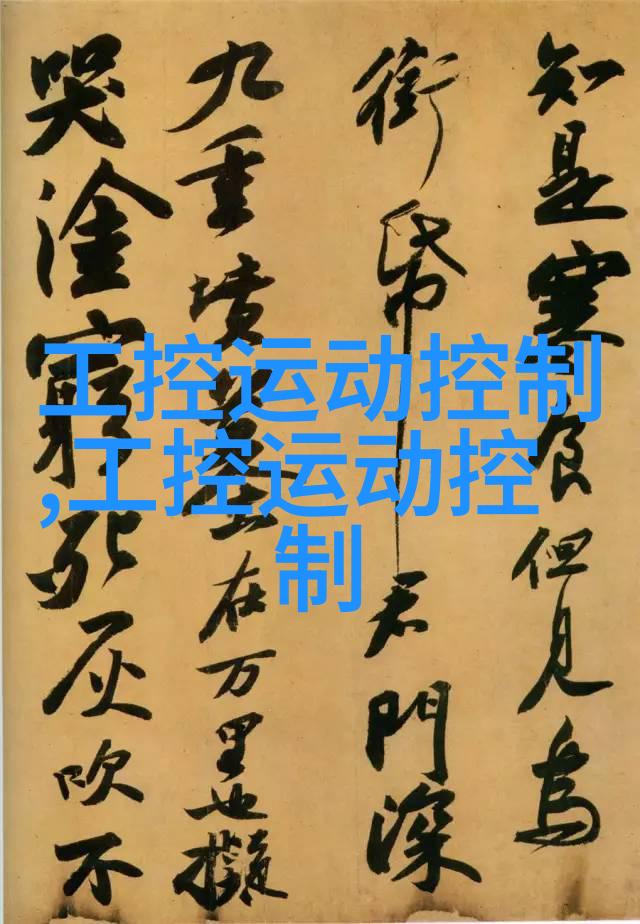 知是寒食但見烏
銜帋君門深
九重墳墓在万里也擬
哭塗窮死灰吹不
工控运动控制
,工控运动控
制